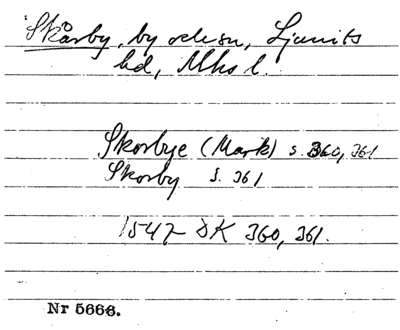 Skårby, by och sn, Ljunits
hd, Mhs l.
Skorbye (Mark) s. 360, 361
Skorby s. 361
1547 DK 360, 361.
Nr 5666.